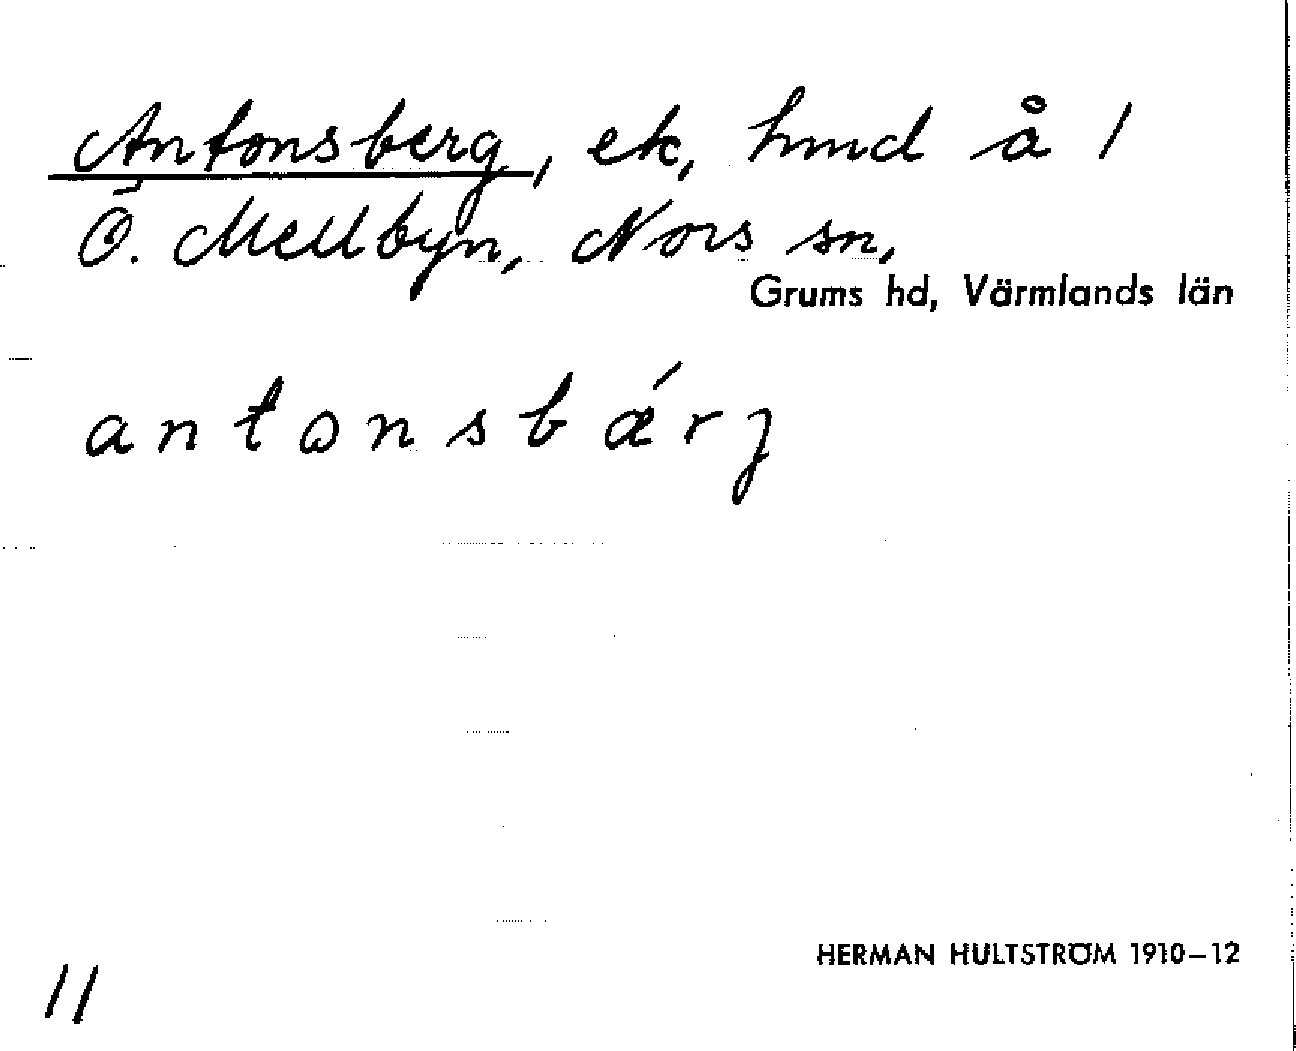 Antonsberg, ek, hmd å 1
Ö. Mellbyn, Nors sn,
Grums hd, Värmlands län
antonsbǽrj
HERMAN HULTSTRÖM 1910–12
11